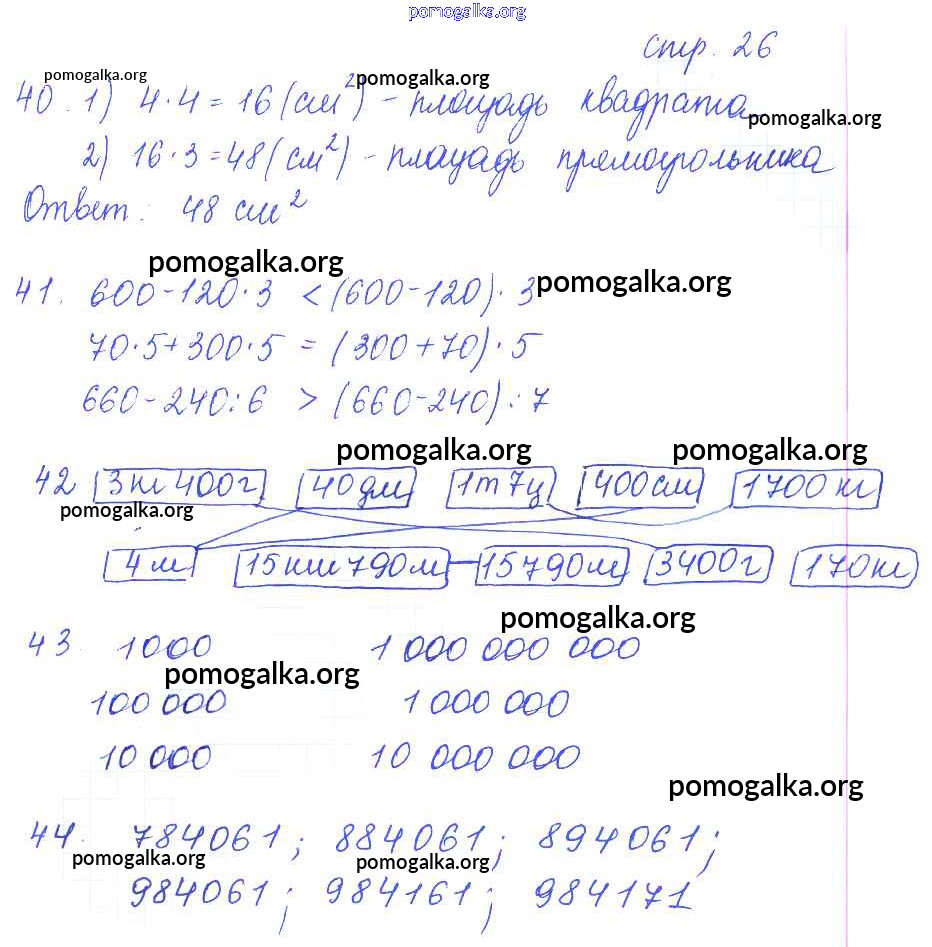 pomogalka.org
стр. 26
pomogalka.org
pomogalka.org
40. 1) 4·4=16(см²) - площадь квадрата
pomogalka.org
2) 16·3=48(см²) - площадь прямоугольника
Ответ: 48 см²
pomogalka.org
pomogalka.org
41. 600-120·3 < (600-120)·3
70·5+300·5 = (300+70)·5
660-240:6 > (660-240):7
pomogalka.org
pomogalka.org
42 3кг 400г 40дм 1т 7ц 400см 1700 кг
pomogalka.org
4м 15км 790м 15790м 3400г 170кг
pomogalka.org
43. 1000 1 000 000 000
pomogalka.org
100 000 1 000 000
10 000 10 000 000
pomogalka.org
44. 784061; 884061; 894061;
pomogalka.org
pomogalka.org
984061; 984161; 984171